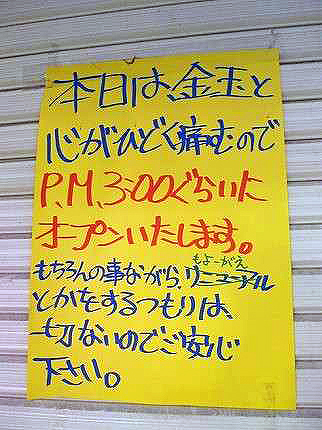 本日は、金玉と
心がひどく痛むので
P.M.3:00ぐらいに
オープンいたします。
もよーがえ
もちろんの事ながら、リニューアル
とかをするつもりは、
一切ないのでご安心
下さい。